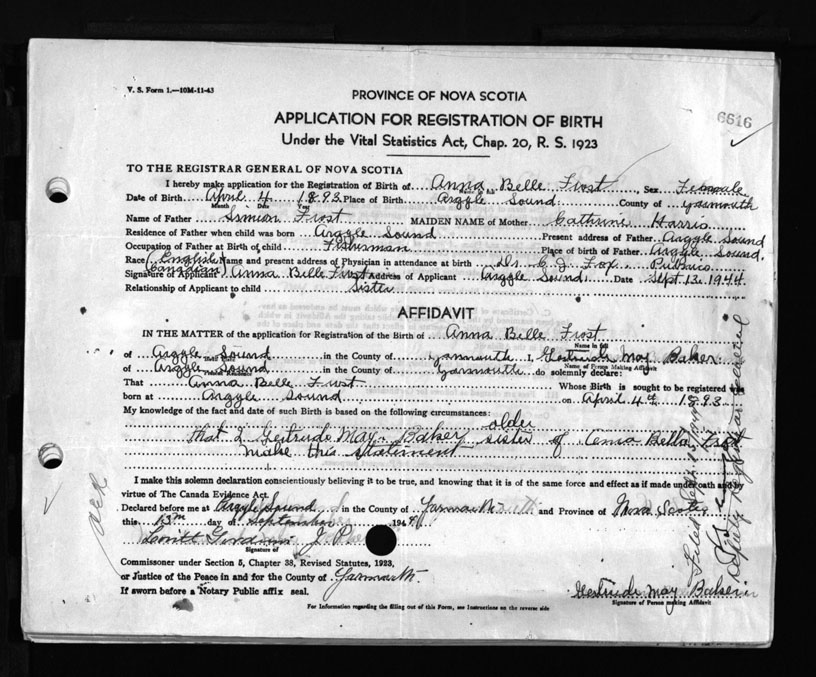 V. S. Form 1.—10M-11-43
PROVINCE OF NOVA SCOTIA
6616
APPLICATION FOR REGISTRATION OF BIRTH
Under the Vital Statistics Act, Chap. 20, R. S. 1923
TO THE REGISTRAR GENERAL OF NOVA SCOTIA
I hereby make application for the Registration of Birth of Anna Belle Frost, Sex Female
Date of Birth April 4 1893 Place of Birth Argyle Sound County of Yarmouth
Month Date Year
Name of Father Simion Frost MAIDEN NAME of Mother Catherine Harris
Residence of Father when child was born Argyle Sound Present address of Father Argyle Sound
Occupation of Father at Birth of child Fisherman Place of birth of Father Argyle Sound.
Race (English Canadian) Name and present address of Physician in attendance at birth Dr. C. J. Fox. Pubnico
Signature of Applicant Anna Belle Frost Address of Applicant Argyle Sound Date Sept. 13. 1944
Relationship of Applicant to child Sister
AFFIDAVIT
IN THE MATTER of the application for Registration of the Birth of Anna Belle Frost
Name in full
of Argyle Sound in the County of Yarmouth I, Gertrude May Baker
Name of Person Making Affidavit
of Argyle Sound in the County of Yarmouth do solemnly declare:
That Anna Belle Frost Whose Birth is sought to be registered was
born at Argyle Sound on April 4th 1893
My knowledge of the fact and date of such Birth is based on the following circumstances:
older
that I Gertrude May Baker sister of Anna Belle Frost
make this statement
I make this solemn declaration conscientiously believing it to be true, and knowing that it is of same force and effect as if made under oath and by
virtue of The Canada Evidence Act.
Declared before me at Argyle Sound in the County of Yarmouth and Province of Nova Scotia
this 13th day of September 1944
J. P.
Signature of
Commissioner under Section 5, Chapter 38, Revised Statutes, 1923,
or Justice of the Peace in and for the County of Yarmouth.
If sworn before a Notary Public affix seal.
Gertrude May Baker
Signature of Person making Affidavit
For Information regarding the filling out of this Form, see Instructions on the reverse side
Filed Sept. 15, 1944
Deputy Registrar General